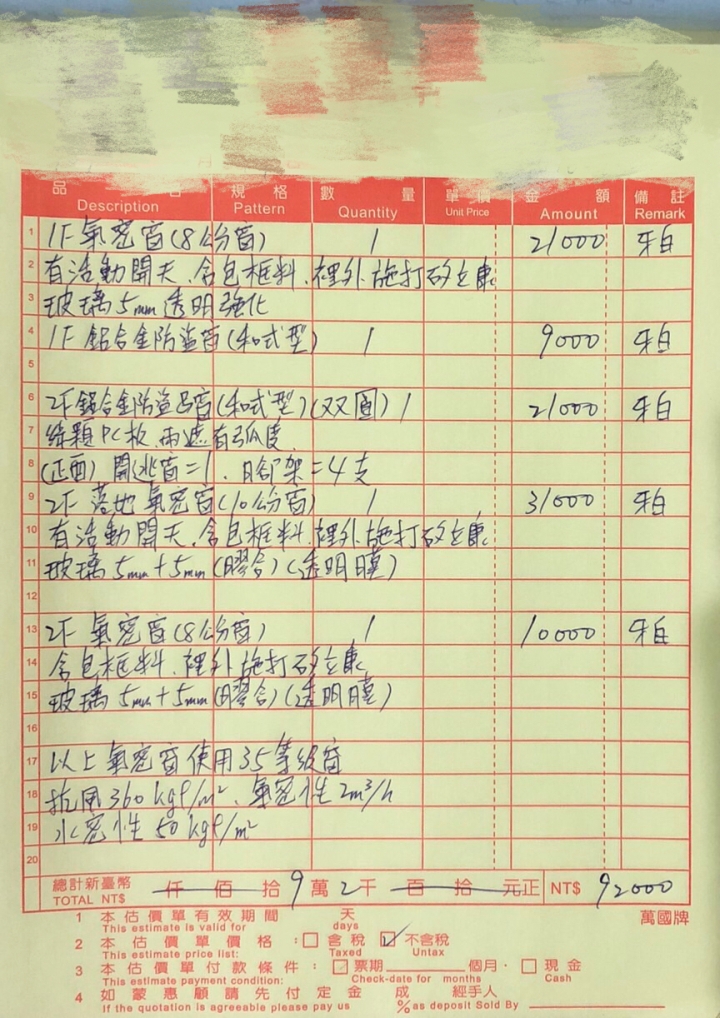 品 規 格 數 量 單 價 金 額 備 註
Description Pattern Quantity Unit Price Amount Remark
1 1F 氣密窗(8公份窗) 1 21000
2 有活動開天、含包框料、裡外施打矽立康
3 玻璃5mm透明強化
4 1F 鋁合金防盜窗(和式型) 1 9000
5
6 2F鋁合金防盜窗(和式型)(双圍) 1 21000
7 PC板、雨遮有弧度
8 (正面) 開逃窗=1、架=4支
9 2F 落地氣密窗(10公份窗) 1 31000
10 有活動開天、含包框料、裡外施打矽立康
11 玻璃 5mm+5mm(膠合)(透明膜)
12
13 2F 氣密窗(8公份窗) 1 10000
14 含包框料、裡外施打矽立康
15 玻璃 5mm+5mm(膠合)(透明膜)
16
17 以上氣密窗使用35等級窗
18 抗風360 kgf/m²、氣密性 2m³/h
19 水密性 50 kgf/m²
20
總計新臺幣 仟 佰 拾 9 萬 2 千 百 拾 元正 NT$ 92000
TOTAL NT$
1 本估價單有效期間 天 萬國牌
This estimate is valid for days
2 本估價單價格：□含稅 ☑不含稅
This estimate price list: Taxed Untax
3 本估價單付款條件：□票期 個月．□現金
This estimate payment condition: Check-date for months Cash
4 如蒙惠顧請先付定金 成 經手人
If the quotation is agreeable please pay us % as deposit Sold By